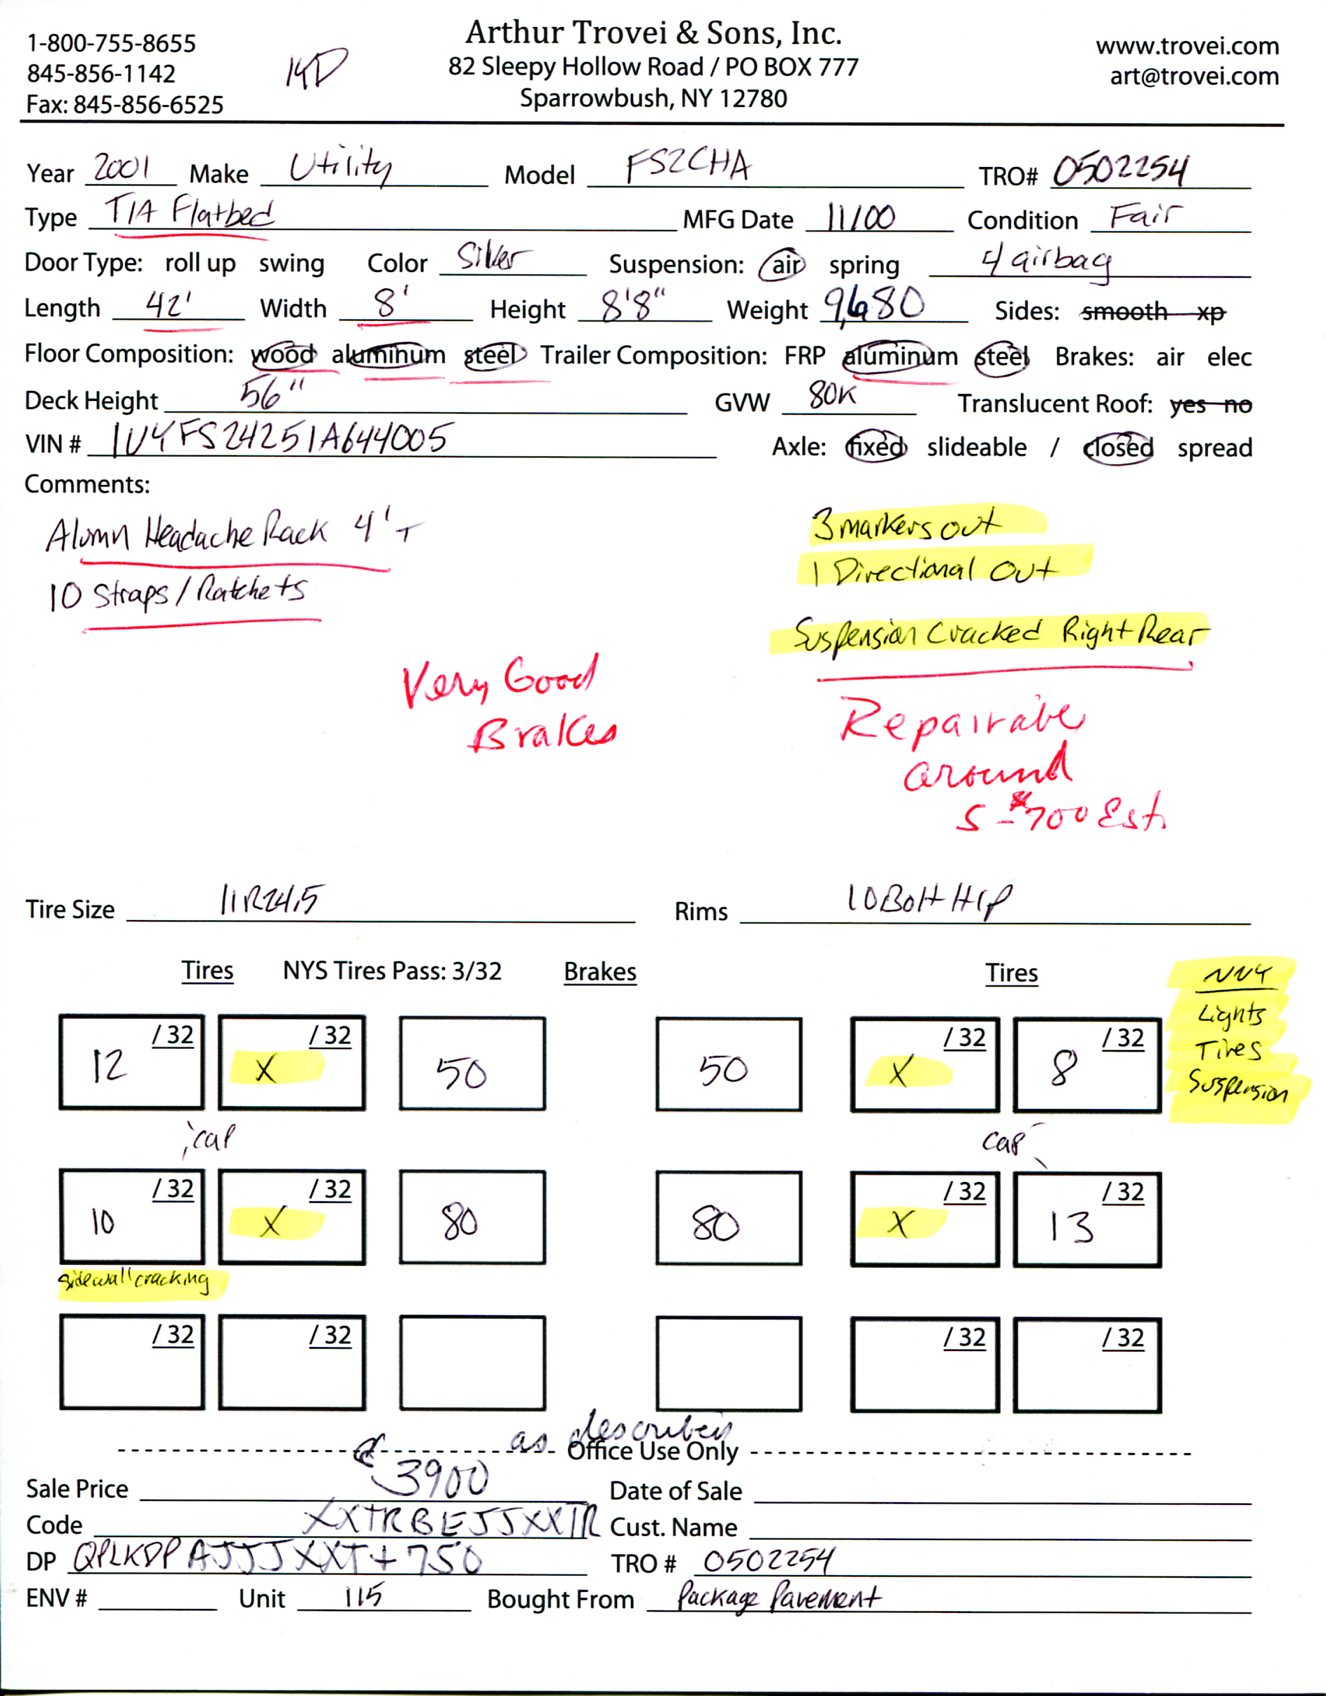 1-800-755-8655
845-856-1142
Fax: 845-856-6525
Arthur Trovei & Sons, Inc.
82 Sleepy Hollow Road / PO BOX 777
Sparrowbush, NY 12780
www.trovei.com
art@trovei.com
Year 2001 Make Utility Model FS2CHA TRO# 0502254
Type T/A Flatbed MFG Date 11/00 Condition Fair
Door Type: roll up swing Color Silver Suspension: air spring 4 airbag
Length 42' Width 8' Height 8'8" Weight 9,680 Sides: smooth xp
Floor Composition: wood aluminum steel Trailer Composition: FRP aluminum steel Brakes: air elec
Deck Height 56" GVW 80K Translucent Roof: yes no
VIN # 1UYFS24251A644005 Axle: fixed slideable / closed spread
Comments:
Alumn Headache Rack 4'T
10 Straps/Ratchets
3 markers out
1 Directional Out
Suspension Cracked Right Rear
Very Good
Brakes
Repairable
around
5-$700 Est.
Tire Size 11R24.5 Rims 10 Bolt H/P
Tires NYS Tires Pass: 3/32 Brakes Tires
NNY
Lights
Tires
Suspension
12 /32 X /32 50 50 X /32 8 /32
cap cap
10 /32 X /32 80 80 X /32 13 /32
sidewall cracking
/32 /32 /32 /32
as described
Office Use Only
Sale Price 3900 Date of Sale
Code XXTRBEJJXXTR Cust. Name
DP QPLKDP AJJJXXT+750 TRO # 0502254
ENV # Unit 115 Bought From Package Pavement